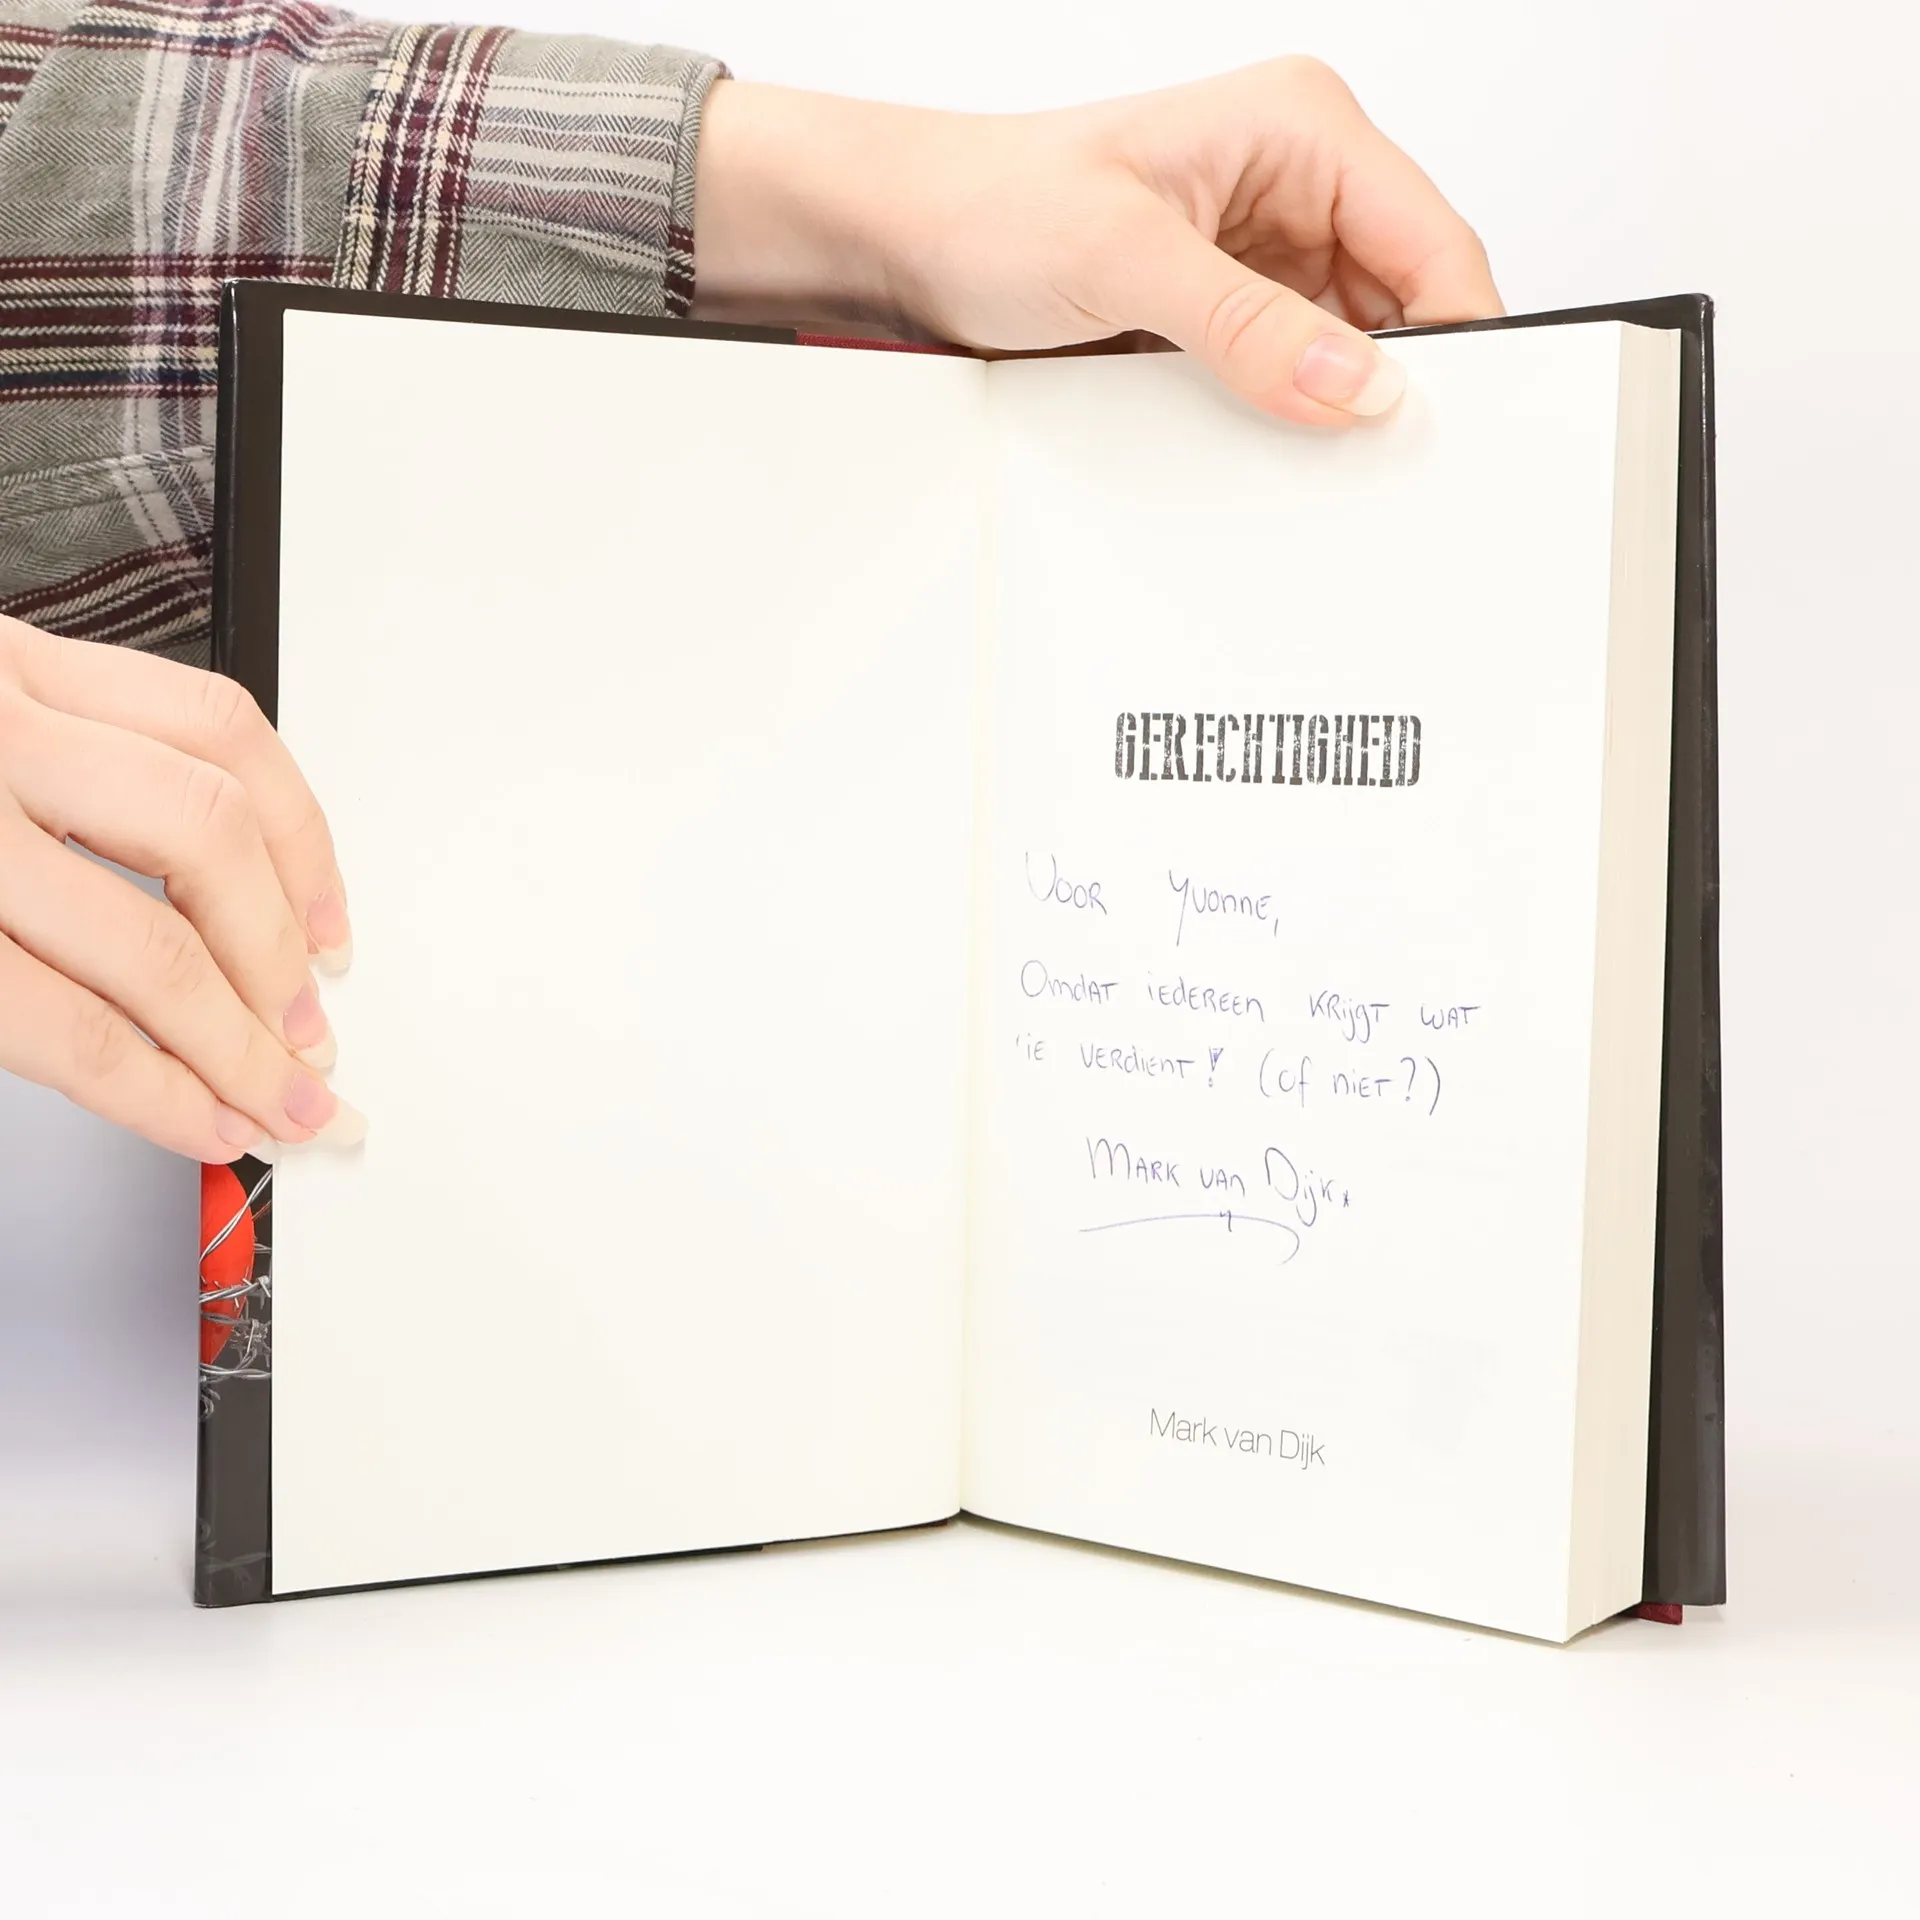 GERECHTIGHEID
Voor Yvonne,
Omdat iedereen krijgt wat
'ie verdient! (of niet?)
Mark van Dijk.
Mark van Dijk